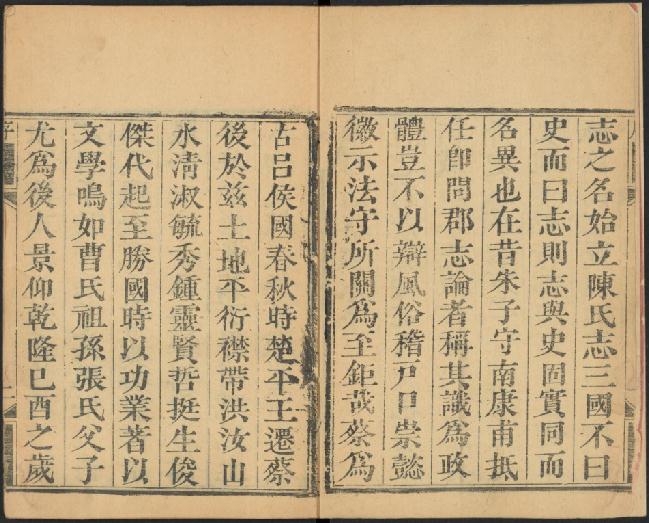 志之名始立陳氏志三國不曰
史而曰志則志與史固實同而
名異也在昔朱子守南康甫抵
任卽問郡志論者稱其識爲政
體豈不以辯風俗稽戸口崇懿
徽示法守所關爲至鉅哉蔡爲
古吕侯國春秋時楚平王遷蔡
後於兹土地平衍襟帶洪汝山
水清淑毓秀鍾靈賢哲挺生俊
傑代起至勝國時以功業著以
文學鳴如曹氏祖孫張氏父子
尤爲後人景仰乾隆巳酉之歲